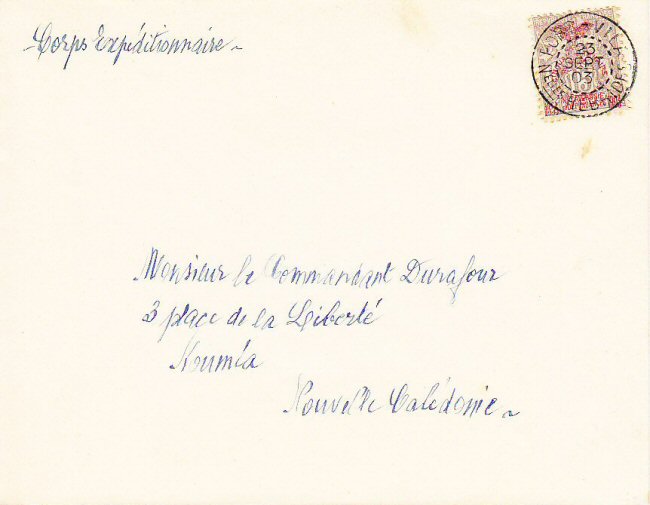 Corps Expéditionnaire
PORT-VILA
23
SEPT
03
NLLES HEBRIDES
15
Monsieur le Commandant Durafour
3 place de la Liberté
Nouméa
Nouvelle Calédonie